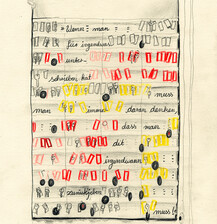 Wenn man
für irgendwas
unter-
schrieben hat
muss
man immer daran denken
dass man
dit
irgendwann
zurückgeben
muss!